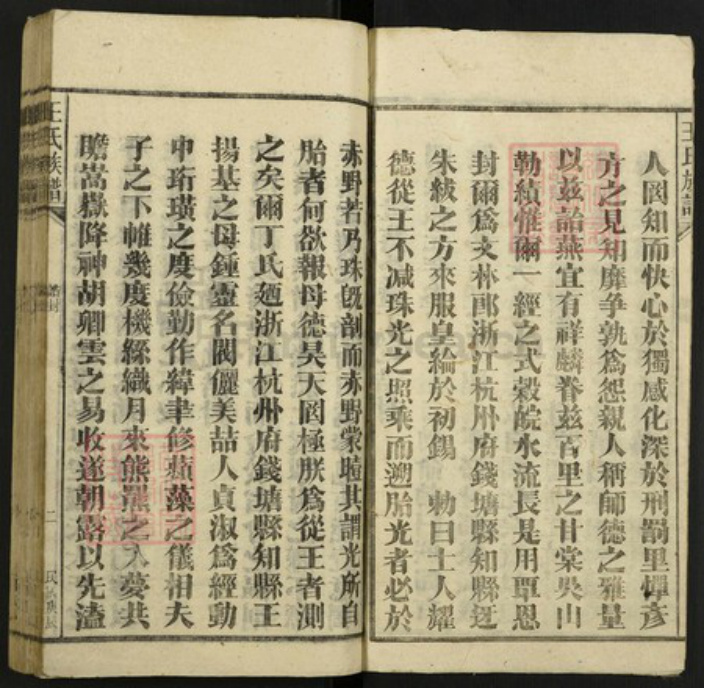 人罔知而快心於獨感化深於刑罰里憚彥
方之見知靡爭孰爲怨親人稱師德之雅量
以茲詒燕宜有祥麟眷茲百里之甘棠吳山
勒績惟爾一經之式穀皖水流長是用覃恩
封爾爲文林郎浙江杭州府錢塘縣知縣迓
朱紱之方來服皇綸於初錫 勅曰士人耀
德從王不減珠光之照乘而遡胎光者必於
赤野若乃珠旣剖而赤野蒙堙其謂光所自
胎者何欲報母德昊天罔極朕爲從王者測
之矣爾丁氏廼浙江杭州府錢塘縣知縣王
揚基之母鍾靈名閥儷美喆人貞淑爲經動
中珩璜之度儉勤作緯聿修蘋藻之儀相夫
子之下帷幾度機絲織月來熊羆之入夢共
瞻嵩嶽降神胡卿雲之易收遂朝露以先溘
王氏族譜
二
王氏族譜